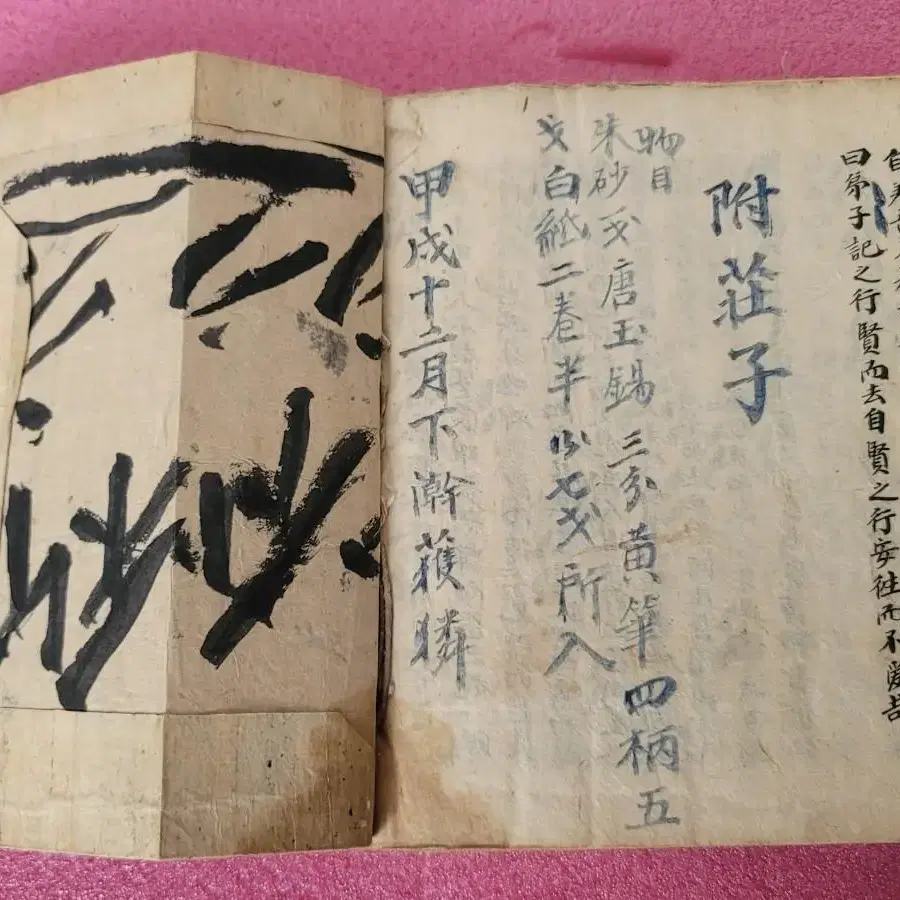 曰弟子記之行賢而去自賢之行安往而不愛哉
附莊子
物目
朱砂戈唐玉鍚三分黃筆四柄五
戈白紙二卷半以七戈所入
甲戌十二月下澣獲麟